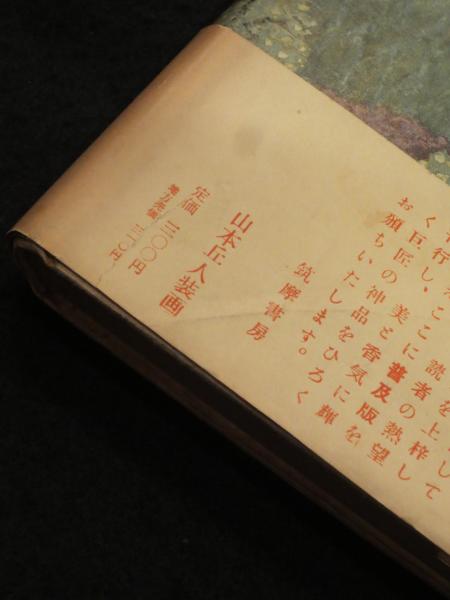 を上梓して
読者の熱望
ここに普及版を
行し、美と香気に輝
く巨匠の神品をひろく
お頒ちいたします。
筑摩書房
山本丘人装画
定価 三〇〇円
地方売価 三一〇円